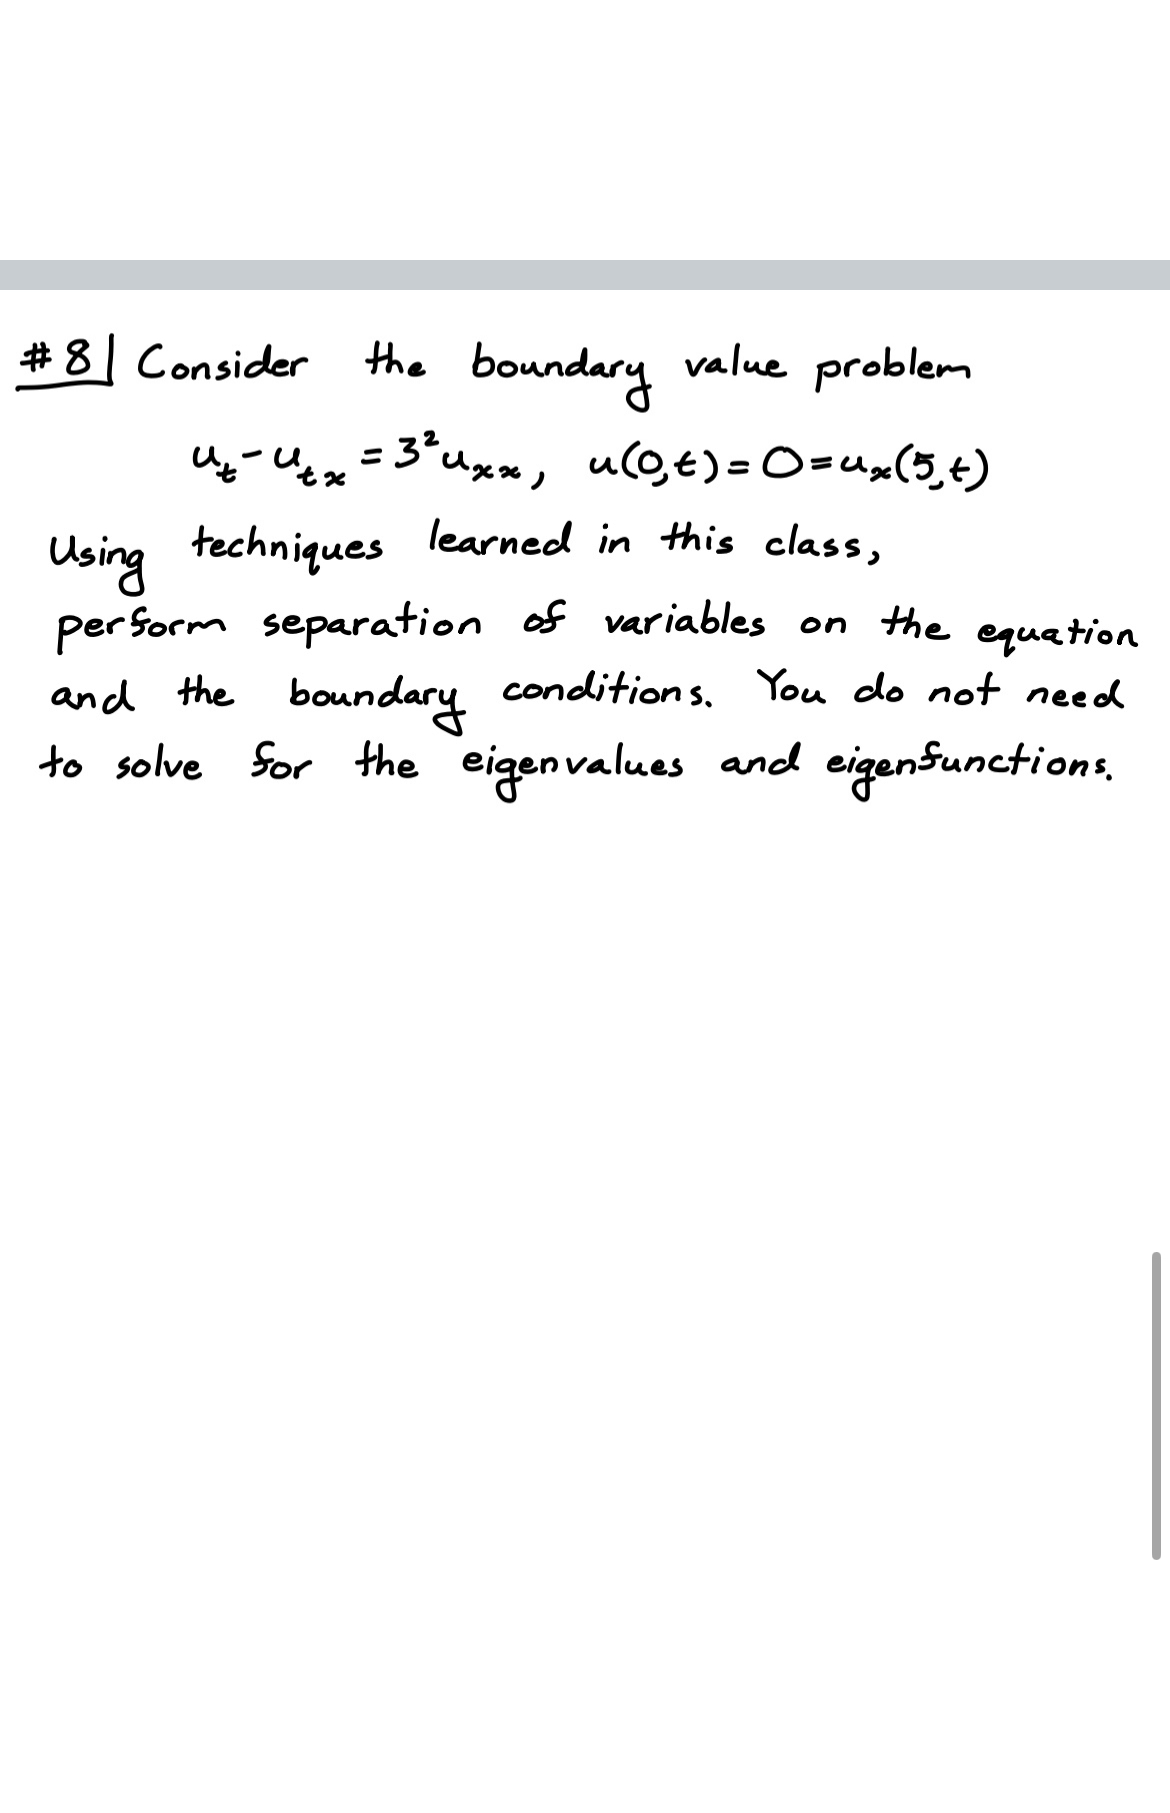 #8| Consider the boundary value problem
u_t - u_tx = 3²u_xx, u(0,t) = 0 = u_x(5,t)
Using techniques learned in this class,
perform separation of variables on the equation
and the boundary conditions. You do not need
to solve for the eigenvalues and eigenfunctions.